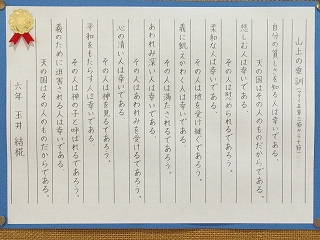 山上の垂訓（マタイ五章三節から十節）
自分の貧しさを知る人は幸いである。
天の国はその人のものだからである。
悲しむ人は幸いである。
その人は慰められるであろう。
柔和な人は幸いである。
その人は地を受け継ぐであろう。
義に飢えかわく人は幸いである。
その人は満たされるであろう。
あわれみ深い人は幸いである。
その人はあわれみを受けるであろう。
心の清い人は幸いである
その人は神を見るであろう。
平和をもたらす人は幸いである
その人は神の子と呼ばれるであろう。
義のために迫害される人は幸いである。
天の国はその人のものだからである。
六年 玉井 結椛